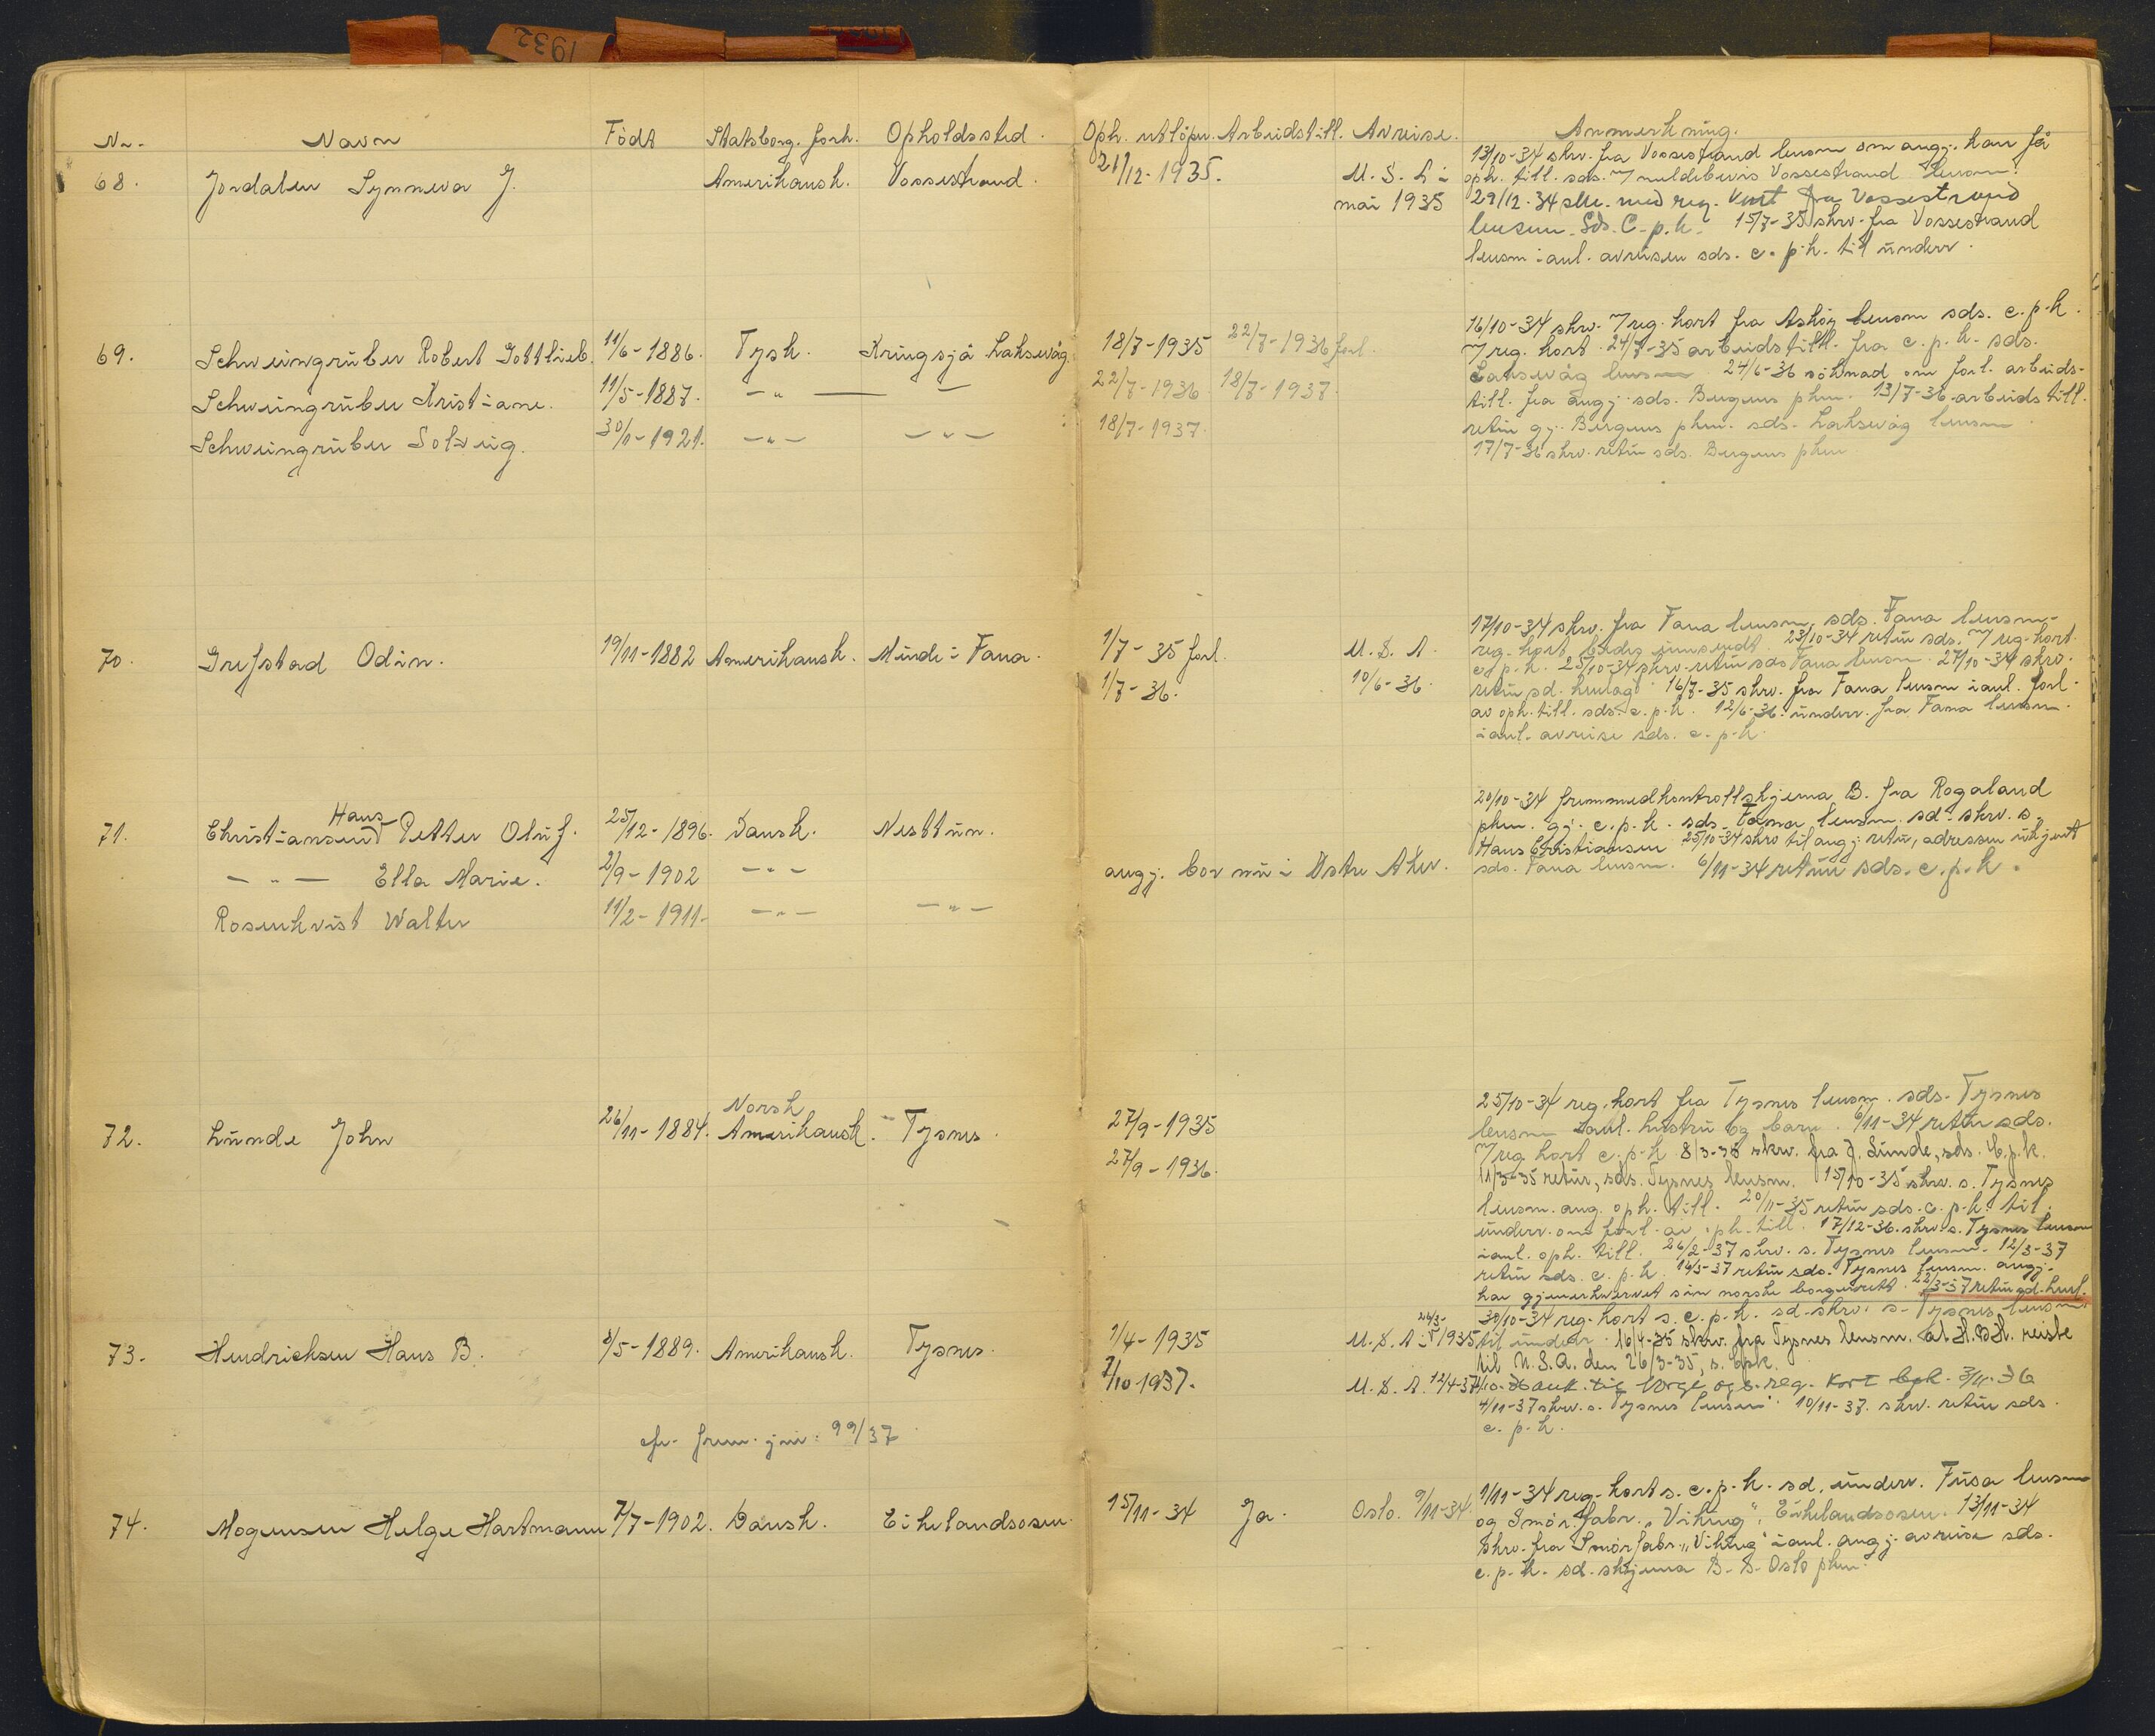 1932
Nr. Navn Födt Statsborg. forh. Opholdssted. Oph. utlöper. Arbeidstill. Avreise. Anmerkning.
68. Jordalen Synneva J. Amerikansk. Vossestrand. 21/12-1935. U.S.A i mai 1935
13/10-34 skrv. fra Vossestrand lensm om angj. kan få
oph. till. sds. 7 meldebevis Vossestrand lensm.
29/12-34 skr. med reg. kort fra Vossestrand
lensm. Sds. C.p.k. 15/7-35 skrv. fra Vossestrand
lensm i anl. avreisen sds. c.p.k. til underr.
69. Schweingrüber Robert Gottlieb. 11/6-1886. Tysk. Kringsjå Laksevåg. 18/7-1935 22/7-1936 forl.
Schweingrüber Kristiane. 11/5-1887. -"- 22/7-1936. 18/7-1937.
Schweingrüber Solveig. 30/1-1921. -"- -"- 18/7-1937.
16/10-34 skrv. 7 reg. kort fra Askøy lensm sds. c.p.k.
7 reg. kort. 24/7-35 arbeidstill. fra c.p.k. sds.
Laksevåg lensm 24/6-36 söknad om forl. arbeids-
till. fra angj. sds. Bergens pkm. 13/7-36 arbeidstill.
retur gj. Bergens pkm. sds. Laksevåg lensm.
17/7-36 skrv. retur sds. Bergens pkm
70. Grefstad Odin. 19/11-1882 Amerikansk. Minde i Fana. 1/7-35 forl. U.S.A.
1/7-36. 10/6-36.
17/10-34 skrv. fra Fana lensm, sds. Fana lensm.
reg. kort bedes innsendt. 23/10-34 retur sds. 7 reg. kort.
c.p.k. 25/10-34 skrv. retur sds Fana lensm. 27/10-34 skrv.
retur sd. henlagt. 16/7-35 skrv. fra Fana lensm i anl. forl.
av oph. till. sds. c.p.k. 12/6-36. underr. fra Fana lensm.
i anl. avreise sds. c.p.k.
71. Christiansen Hans Petter Oluf. 25/12-1896. Dansk. Nesttun.
-"- Ella Marie. 2/9-1902 -"- angj. bor nu i Østre Aker.
Rosenkvist Walter 11/2-1911. -"- -"-
20/10-34 fremmedkontrollskjema B. fra Rogaland
pkm. gj. c.p.k. sds. Fana lensm. sd. skrv. s.
Hans Christiansen 25/10-34 skrv til angj. retur, adressen ukjent
sds. Fana lensm. 6/11-34 retur sds. c.p.k.
72. Lunde John 26/11-1884. Norsk Amerikansk. Tysnes. 27/9-1935
27/9-1936.
25/10-34 reg. kort fra Tysnes lensm. sds. Tysnes
lensm i anl. hustru og barn. 6/11-34 retur sds.
7 reg kort c.p.k. 8/3-35 skrv. fra J. Lunde, sds. C.p.k.
11/3-35 retur, sds. Tysnes lensm. 15/10-35 skrv. s. Tysnes
lensm. ang. oph. till. 20/11-35 retur sds. c.p.k. til
underr. om forl. av oph. till. 17/12-36. skrv. s. Tysnes lensm
i anl. oph. till. 26/2-37 skrv. s. Tysnes lensm. 12/3-37
retur sds. c.p.k. 14/3-37 retur sds. Tysnes lensm. angj.
har gjenerhvervet sin norske borgerrett. 22/3-37 retur sd. henl.
73. Hendricksen Hans B. 8/5-1889. Amerikansk. Tysnes. 1/4-1935 U.S.A. 26/3-1935
7/10 1937. U.S.A. 12/4-37
30/10-34 reg. kort s. c.p.k. sd. skrv. s. Tysnes lensm.
til underr. 16/4-35 skrv. fra Tysnes lensm. at H.B.H. reiste
til U.S.A. den 26/3-35, s. Cpk.
7/10-36 ank. til Norge og s. reg. kort Cpk. 3/11-36
4/11-37 skrv. s. Tysnes lensm. 10/11-37. skrv. retur sds.
c.p.k.
cfr. frem. jnr: 99/37
74. Mogensen Helge Hartmann 7/7-1902. Dansk. Eikelandsosen. 15/11-34 Ja. Oslo. 9/11-34
1/11-34 reg. kort s. c.p.k. sd. underr. Fusa lensm
og Smör.fabr. „Viking", Eikelandsosen. 13/11-34
skrv. fra Smörfabr. „Viking" i anl. angj. avreise sds.
c.p.k. sd. skjema B. S. Oslo pkm.